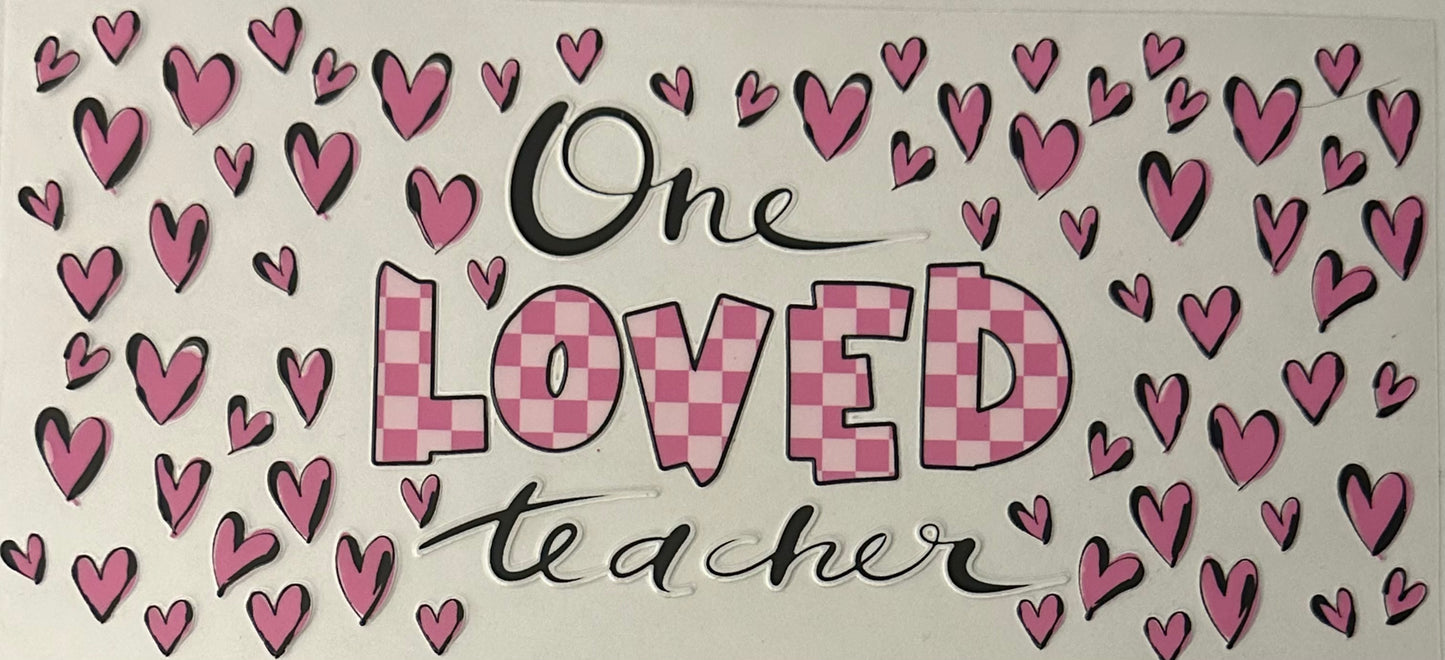 One
LOVED
teacher